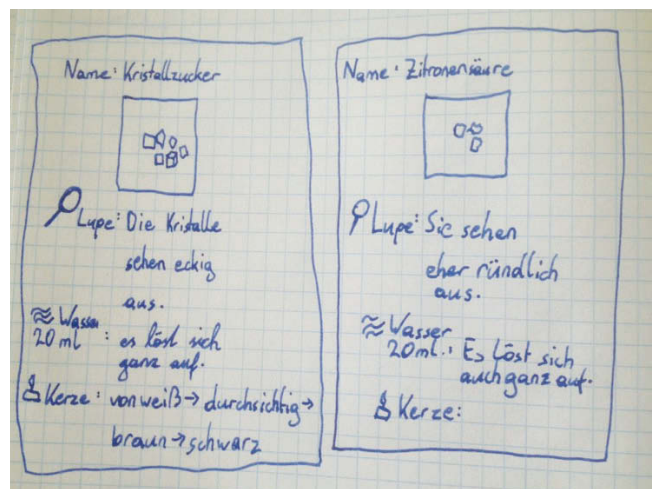 Name: Kristallzucker
Lupe: Die Kristalle
sehen eckig
aus.
Wasser
20 ml : es löst sich
ganz auf.
Kerze: von weiß → durchsichtig →
braun → schwarz
Name: Zitronensäure
Lupe: Sie sehen
eher ründlich
aus.
Wasser
20ml.: Es löst sich
auch ganz auf.
Kerze: